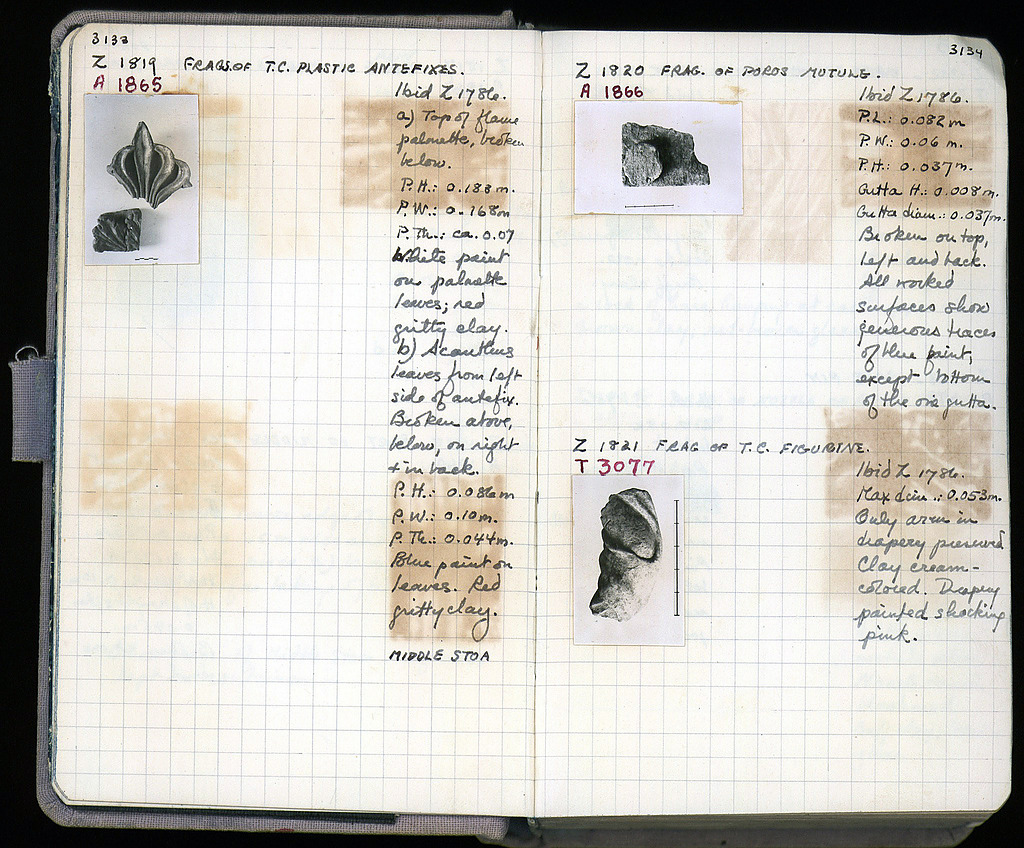 3133
Z 1819 FRAGS. OF T.C. PLASTIC ANTEFIXES.
A 1865
Ibid Z 1786.
a) Top of flame
palmette, broken
below.
P.H.: 0.183 m.
P.W.: 0.168m
P.Th.: ca. 0.07
White paint
on palmette
leaves; red
gritty clay.
b) Acanthus
leaves from left
side of antefix.
Broken above,
below, on right
+ in back.
P.H.: 0.086m
P.W.: 0.10m.
P.Th.: 0.044m.
Blue paint on
leaves. Red
gritty clay.
MIDDLE STOA
3134
Z 1820 FRAG. OF POROS MUTULE.
A 1866
Ibid Z 1786.
P.L.: 0.082 m
P.W.: 0.06 m.
P.H.: 0.037m.
Gutta H.: 0.008m.
Gutta diam.: 0.037m.
Broken on top,
left and back.
All worked
surfaces show
generous traces
of blue paint,
except bottom
of the one gutta.
Z 1821 FRAG OF T.C. FIGURINE.
T 3077
Ibid Z 1786.
Max dim.: 0.053m.
Only arm in
drapery preserved
Clay cream-
colored. Drapery
painted shocking
pink.